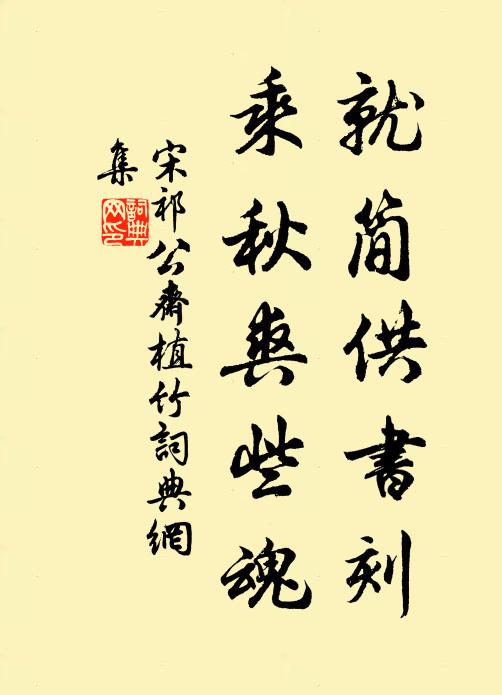 就简供書刻
乘秋爽些魂
宋祁公齋植竹詞典網
集
詞典網印